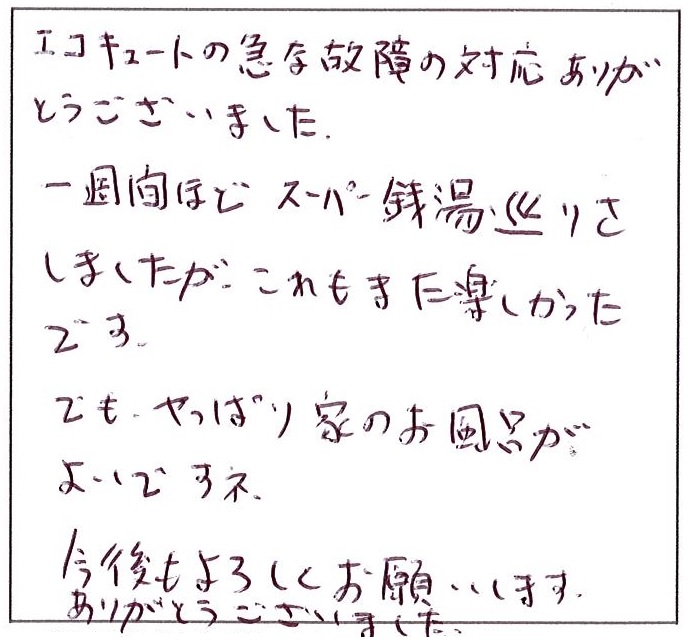 エコキュートの急な故障の対応ありが
とうございました.
一週間ほど スーパー銭湯巡りを
しましたが、これもまた楽しかった
です.
でも、やっぱり家のお風呂が
よいですネ.
今後もよろしくお願いします.
ありがとうございました.